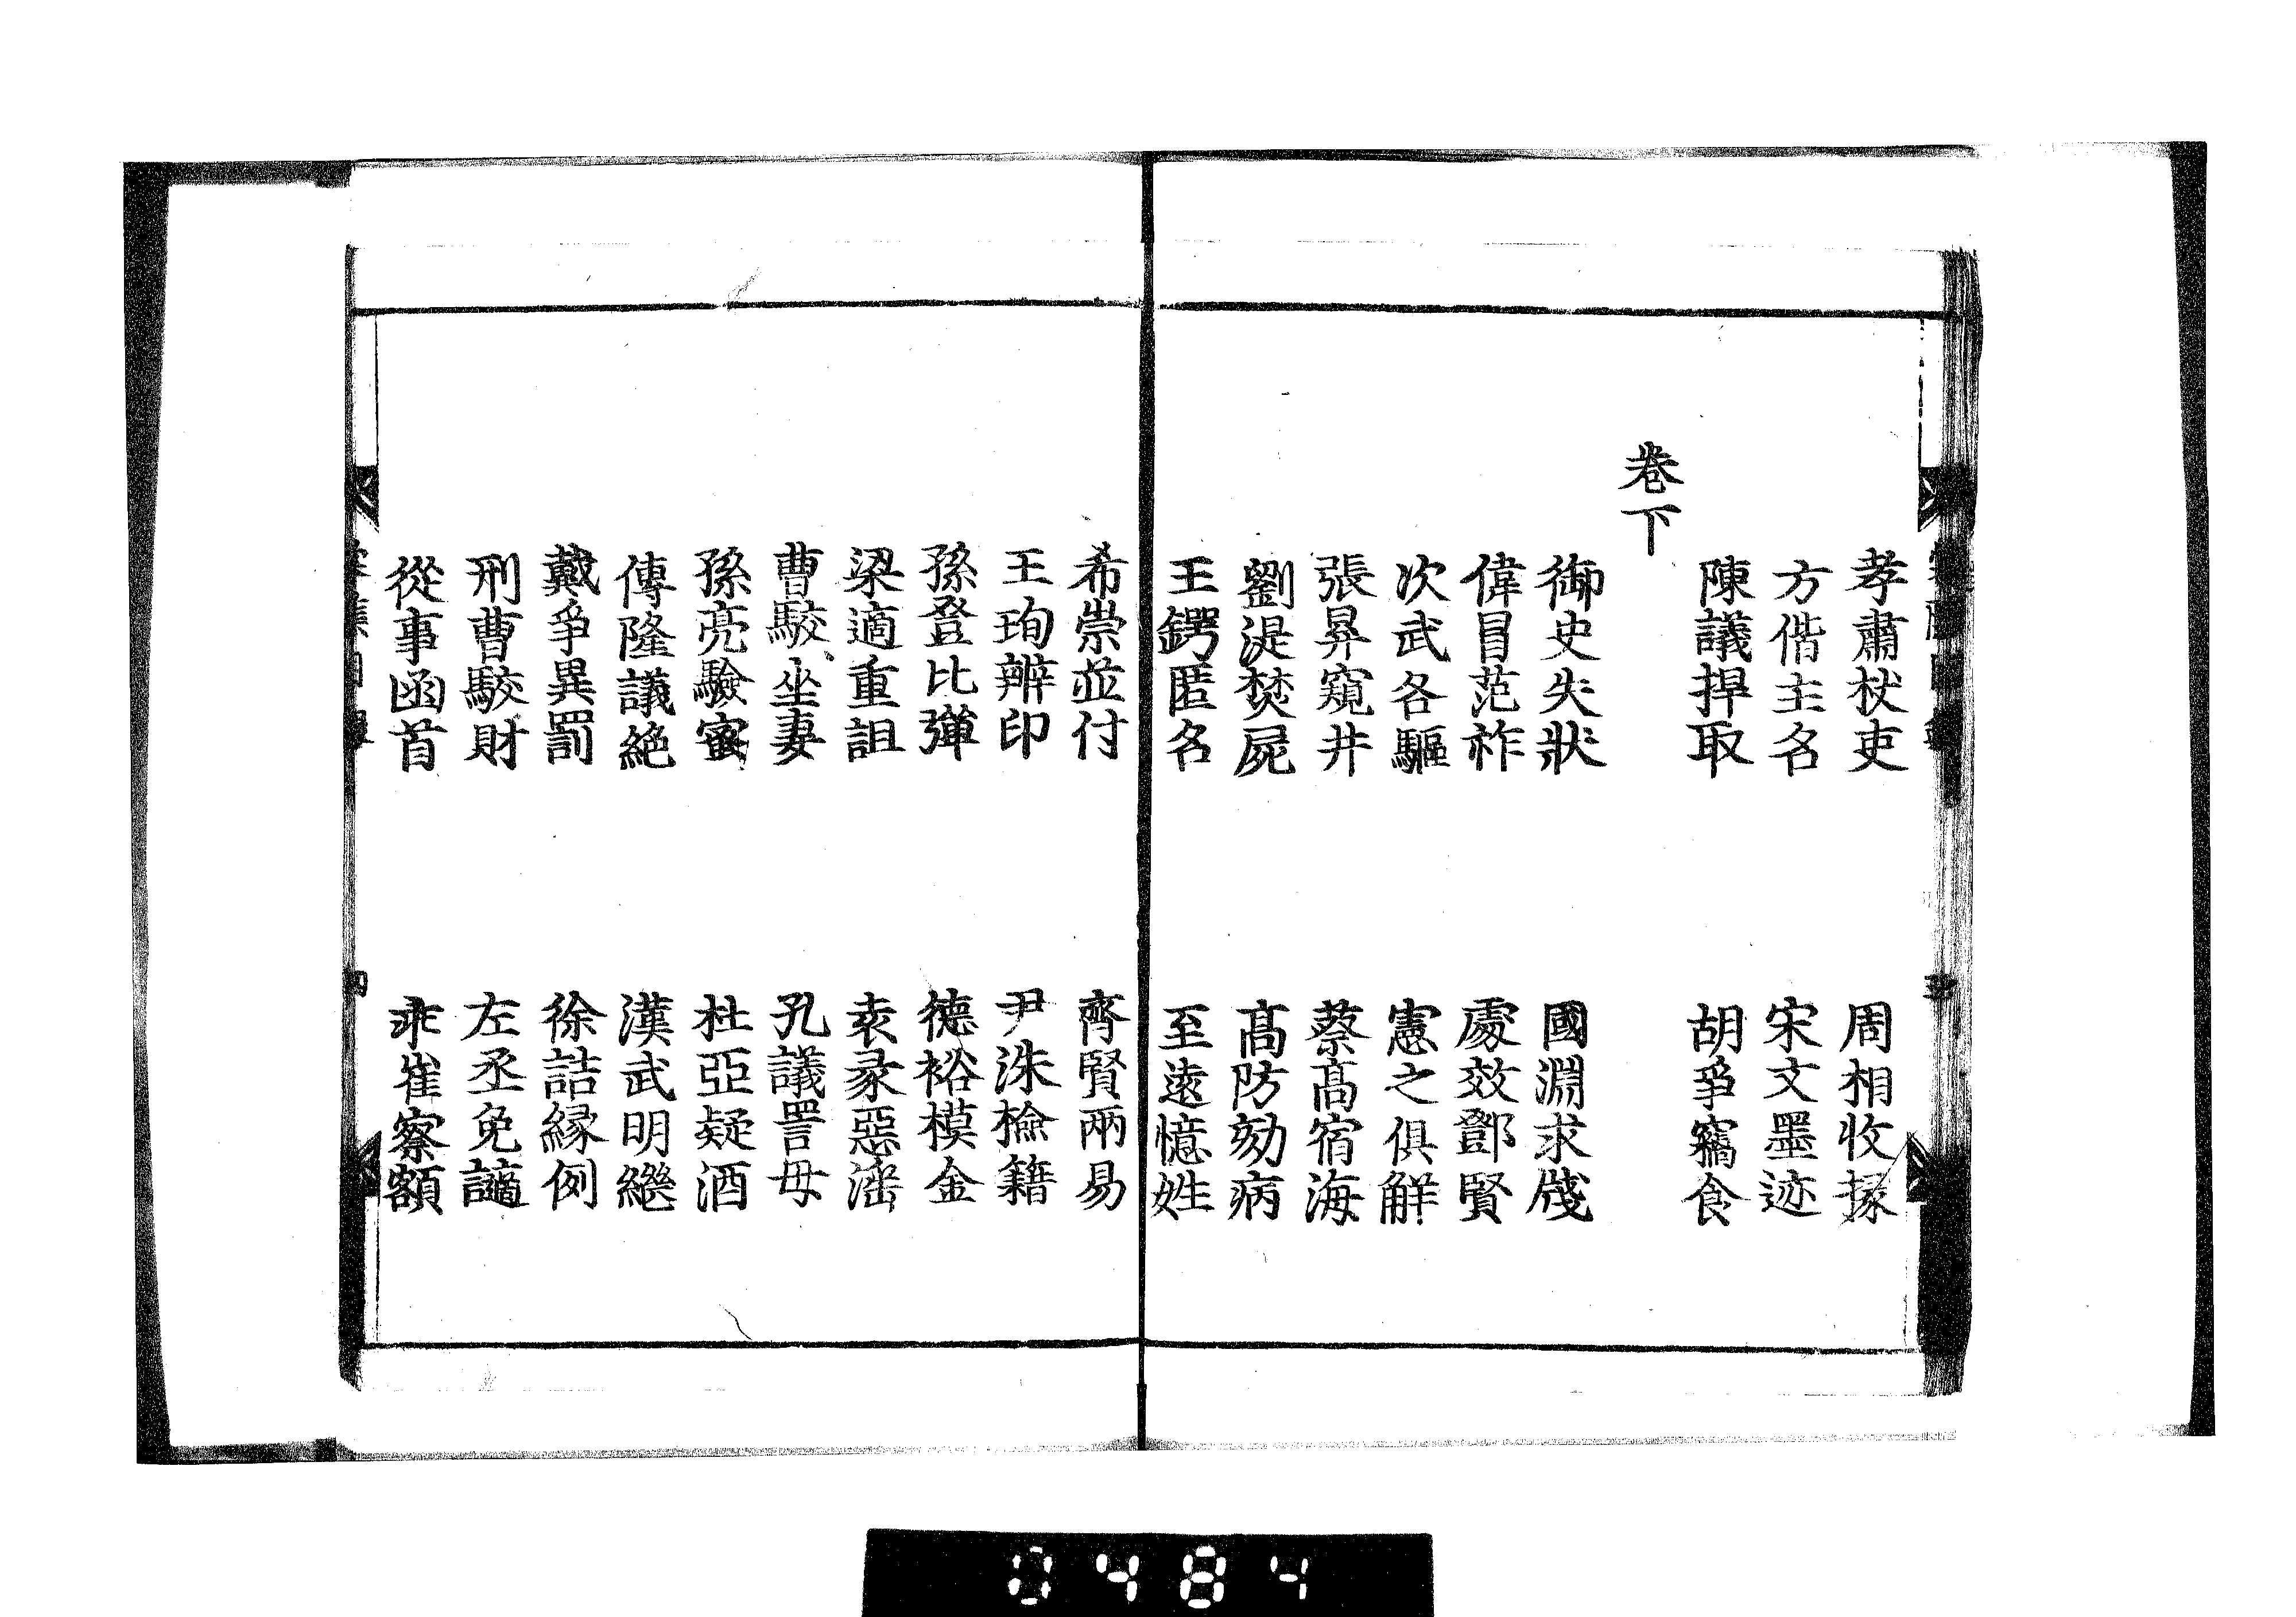 孝肅杖吏 周相收掾
方偕主名 宋文墨迹
陳議捍取 胡爭竊食
卷下
御史失狀 國淵求牋
偉冒范祚 處效鄧賢
次武各驅 憲之俱解
張昇窺井 蔡高宿海
劉湜焚屍 高防劾病
王鍔匿名 至遠憶姓
希崇並付 齊賢兩易
王珣辨印 尹洙檢籍
孫登比彈 德裕模金
梁適重詛 袁彖惡濫
曹駮坐妻 孔議詈母
孫亮驗蜜 杜亞疑酒
傅隆議絕 漢武明繼
戴爭異罰 徐詰緣例
刑曹駮財 左丞免謫
從事函首 乖崖察額
0484